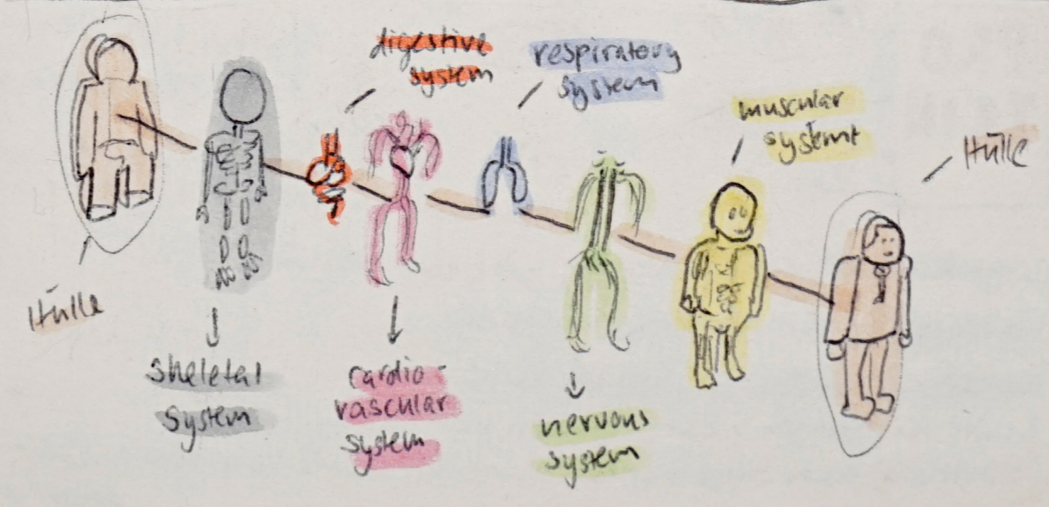 digestive
system
respiratory
system
muscular
system
Hülle
Hülle
skeletal
system
cardio-
vascular
system
nervous
system